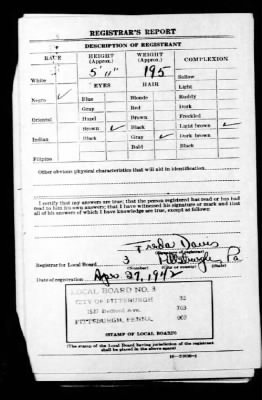 REGISTRAR'S REPORT
DESCRIPTION OF REGISTRANT
RACE HEIGHT (Approx.) WEIGHT (Approx.) COMPLEXION
5' 11" 195 Sallow
White Light
EYES HAIR
Negro ✓ Blue Blonde Ruddy
Gray Red Dark
Oriental Hazel Brown Freckled
Brown ✓ Black Light brown ✓
Indian Black Gray ✓ Dark brown
Bald Black
Filipino
Other obvious physical characteristics that will aid in identification
I certify that my answers are true; that the person registered has read or has had
read to him his own answers; that I have witnessed his signature or mark and that
all of his answers of which I have knowledge are true, except as follows:
Freda Davis
(Signature of registrar)
Registrar for Local Board 3 Pittsburgh Pa
(Number) (City or county) (State)
Date of registration Apr 27, 1942
LOCAL BOARD NO. 3
CITY OF PITTSBURGH 32
1537 Bedford Ave. 763
PITTSBURGH, PENNA. 003
(STAMP OF LOCAL BOARD)
(The stamp of the Local Board having jurisdiction of the registrant
shall be placed in the above space)